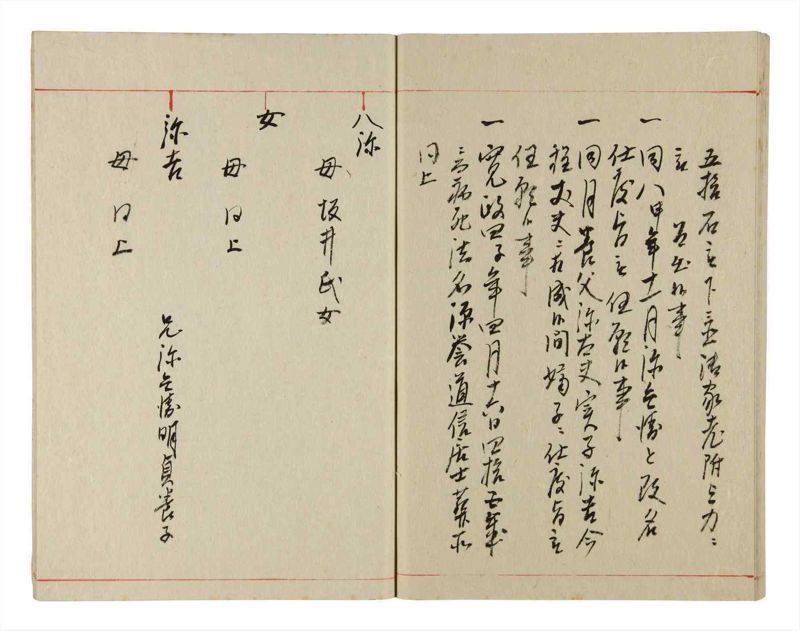 五拾石被下置御家老附与力ニ
被 召出候事
一同八申年十一月弥兵衛と改名
仕度旨被任願候事
一同月養父弥太夫実子弥吉今
程丈夫ニ相成候間嫡子ニ仕度旨被
任願候事
一寛政四子年四月十六日四拾五歳
ニ而病死法名源誉道信居士葬所
同上
八弥
母 坂井氏女
女
母 同上
弥吉 兄弥兵衛明貞養子
母 同上